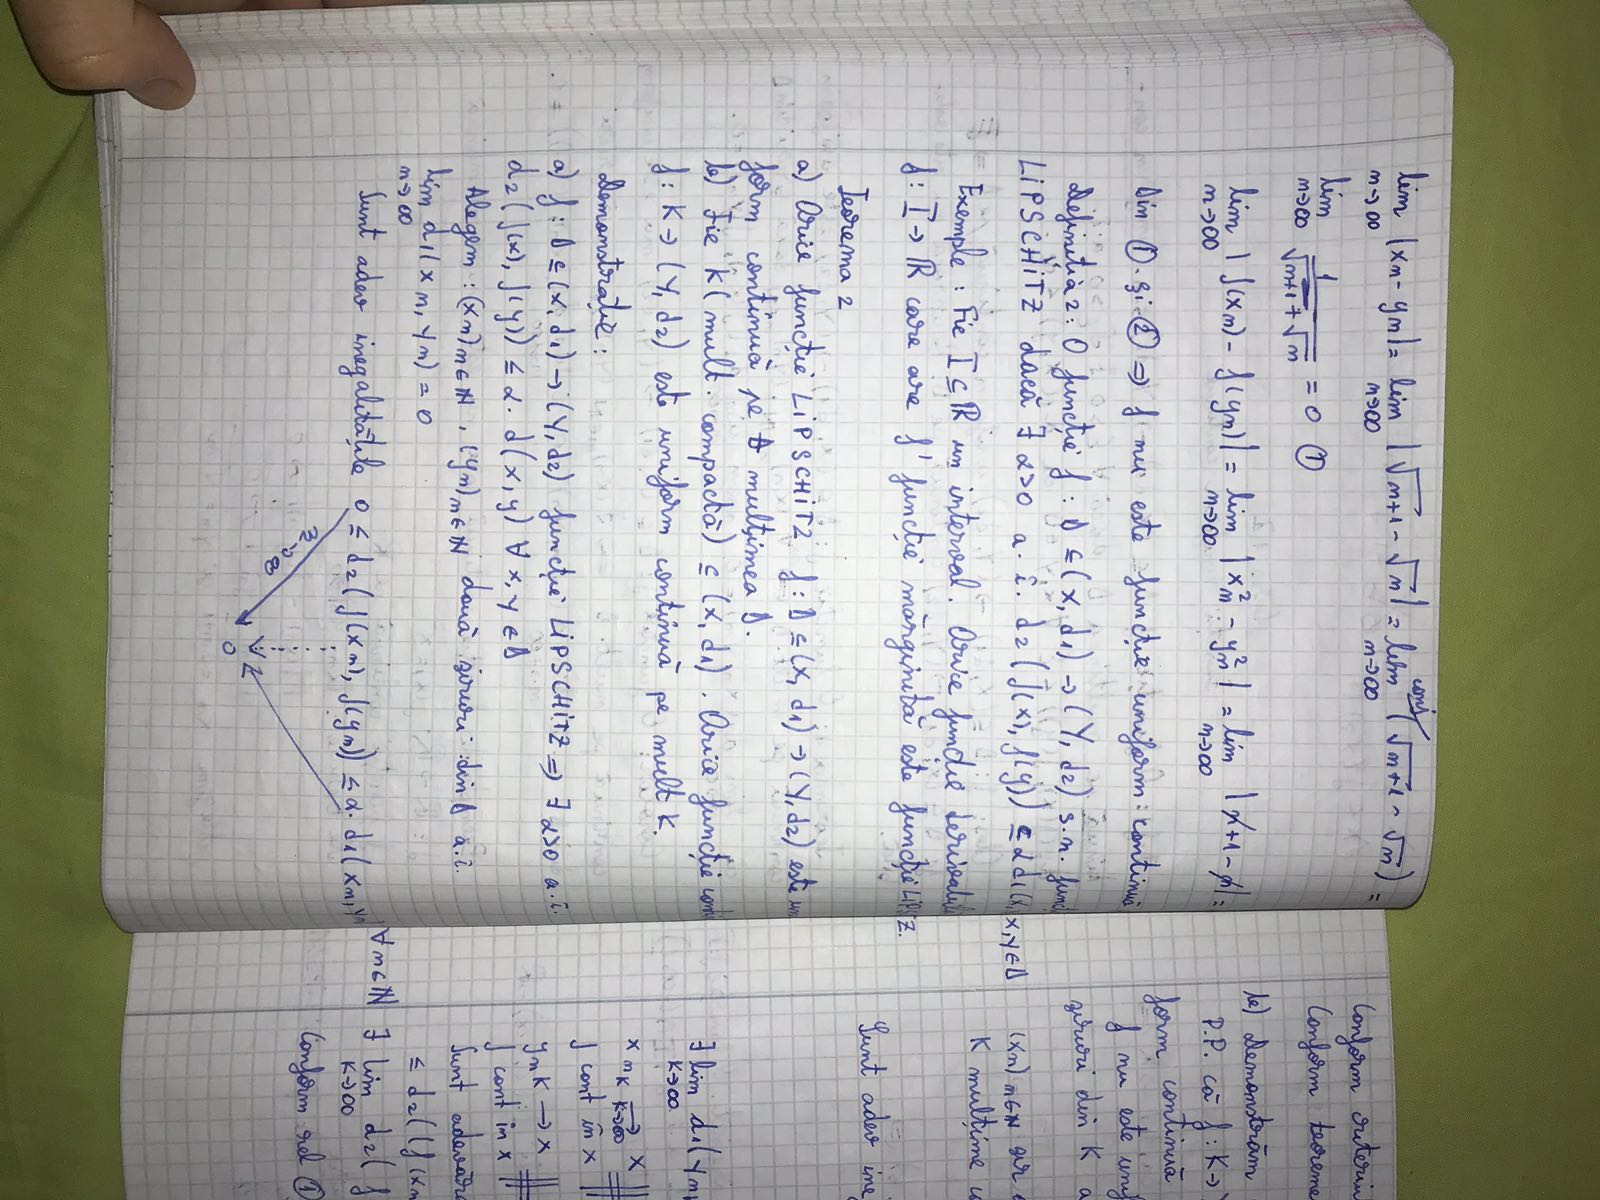 lim |xn - yn| = lim |√n+1 - √n| = lim (√n+1 - √n) =
n→∞ n→∞ n→∞
lim 1/(√n+1 + √n) = 0 ①
n→∞
lim |f(xn) - f(yn)| = lim |xn² - yn²| = lim |n+1 - n| =
n→∞ n→∞ n→∞
Din ① și ② ⇒ f nu este funcție uniform continuă
Definiția 2: O funcție f: D ⊆ (X, d1) → (Y, d2) s.n. func
LiPSCHiTZ dacă ∃ α>0 a.î. d2(f(x), f(y)) ≤ α d1(x,y) x,y∈D
Exemple: Fie I ⊆ ℝ un interval. Orice funcție derivabilă
f: I → ℝ care are f' funcție mărginită este funcție LiPSZ.
Teorema 2
a) Orice funcție LiPSCHiTZ f: D ⊆ (X, d1) → (Y, d2) este un
form continuă pe mulțimea D.
b) Fie K (mult. compactă) ⊆ (X, d1). Orice funcție cont
f: K → (Y, d2) este uniform continuă pe mult K.
Demonstrație:
a) f: D ⊆ (X, d1) → (Y, d2) funcție LiPSCHiTZ ⇒ ∃ α>0 a.î.
d2(f(x), f(y)) ≤ α · d(x,y) ∀ x,y ∈ D
Alegem: (xn)n∈ℕ, (yn)n∈ℕ două șiruri din D a.î.
lim d1(xn, yn) = 0
n→∞
Sunt adev inegalitățile 0 ≤ d2(f(xn), f(yn)) ≤ α·d1(xn, yn) ∀ n∈ℕ
n→∞
0
Conform criteriu
Conform teoreme
b) Demonstrăm
P.P. că f: K →
form continuă
f nu este unif
șiruri din K a
(xn)n∈ℕ șir
K mulțime
Sunt adev ine
∃ lim d1(yn
k→∞
xnk → x
k→∞
f cont în x
ynk → x
f cont în x
Sunt adevăra
≤ d2(f(xn
∃ lim d2(f
k→∞
Conform rel ①